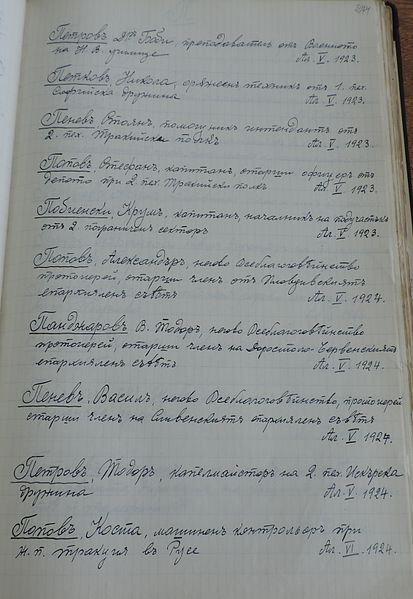 Петровъ Д-ръ Боби, преподаватель отъ Военното
на Н. В. училище Ал. V. 1923.
Петковъ, Никола, оръженъ техникъ отъ 1. пех.
Софийска дружина Ал. V. 1923.
Пеневъ Стоянъ, помощникъ интендантъ отъ
2. пех. Тракийски полкъ Ал. V. 1923.
Поповъ, Стефанъ, капитанъ, старши офицеръ отъ
депото при 2 пех Тракийски полкъ Ал. V. 1923.
Крумъ, капитанъ, началникъ на подучастъка
отъ 2 пограниченъ секторъ Ал. V. 1923.
Поповъ, Александъръ, негово Всеблагоговѣинство
протоиерей, старши членъ отъ Пловдивскиятъ
епархиаленъ съвѣтъ Ал. V. 1924.
Панджаровъ В. Тодоръ, негово Всеблагоговѣинство
протоиерей, старши членъ на Доростоло-Червенскиятъ
епархиаленъ съвѣтъ Ал. V. 1924.
Пеневъ, Василъ, негово Всеблагоговѣинство, протоиерей
старши членъ на Сливенскиятъ епархиаленъ съвѣтъ
Ал. V. 1924.
Петровъ, Тодоръ, капелмайсторъ на 2. пех. Искърска
дружина Ал. V. 1924.
Поповъ, Коста, машиненъ контрольоръ при
ж. п. тракция въ Русе Ал. VI. 1924.